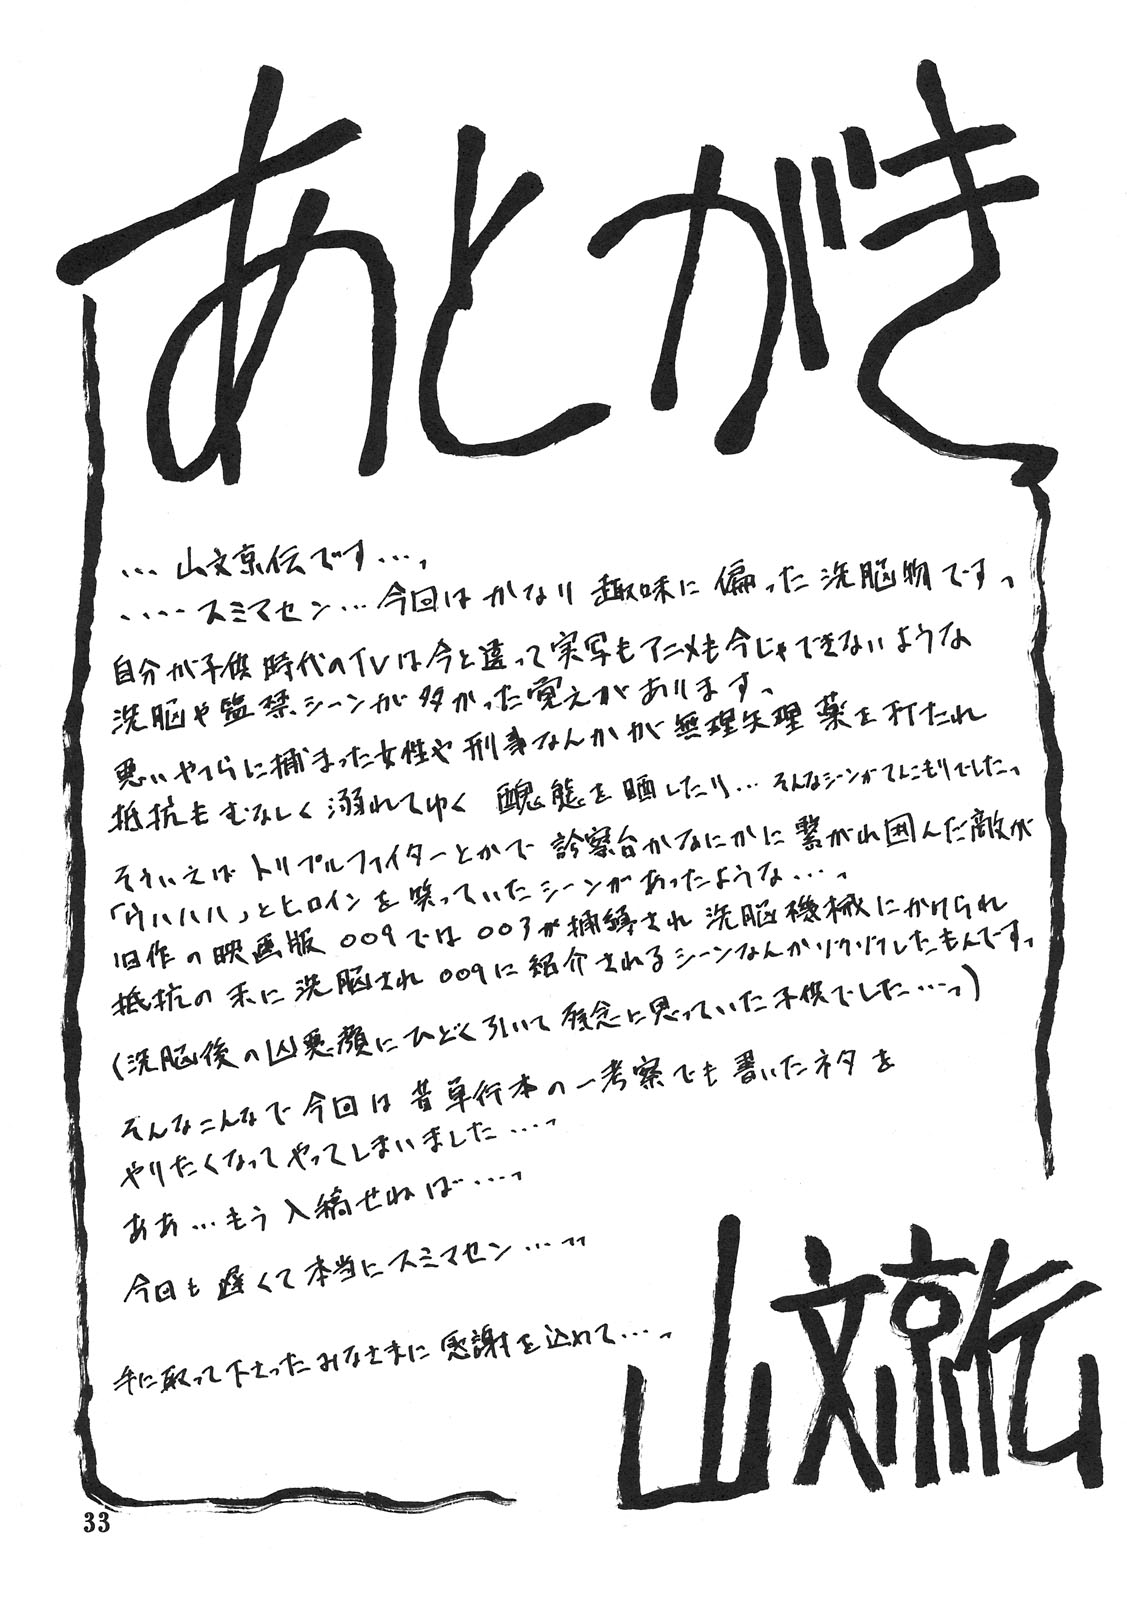 あとがき
・・・山文京伝です・・・っ
・・・・スミマセン・・・今回はかなり趣味に偏った洗脳物ですっ
自分が子供時代のTVは今と違って実写もアニメも今じゃできないような
洗脳や監禁シーンが多かった覚えがあります。
悪いやつらに捕まった女性や刑事なんかが無理矢理薬を打たれ
抵抗もむなしく溺れてゆく 醜態を晒したり・・・そんなシーンがてんこもりでしたっ
そういえばトリプルファイターとかで診察台かなにかに繋がれ囲んだ敵が
「ウハハハ」とヒロインを笑っていたシーンがあったような・・・っ
旧作の映画版009では003が捕縛され洗脳機械にかけられ
抵抗の末に洗脳され009に紹介されるシーンなんかゾクゾクしたもんですっ
(洗脳後の凶悪顔にひどく引いて残念に思っていた子供でした・・・っ)
そんなこんなで今回は昔単行本の一考察でも書いたネタを
やりたくなってやってしまいました・・・っ
ああ・・・もう入稿せねば・・・っ
今回も遅くて本当にスミマセン・・・っっ
手に取って下さったみなさまに感謝を込めて・・・っ
山文京伝
33